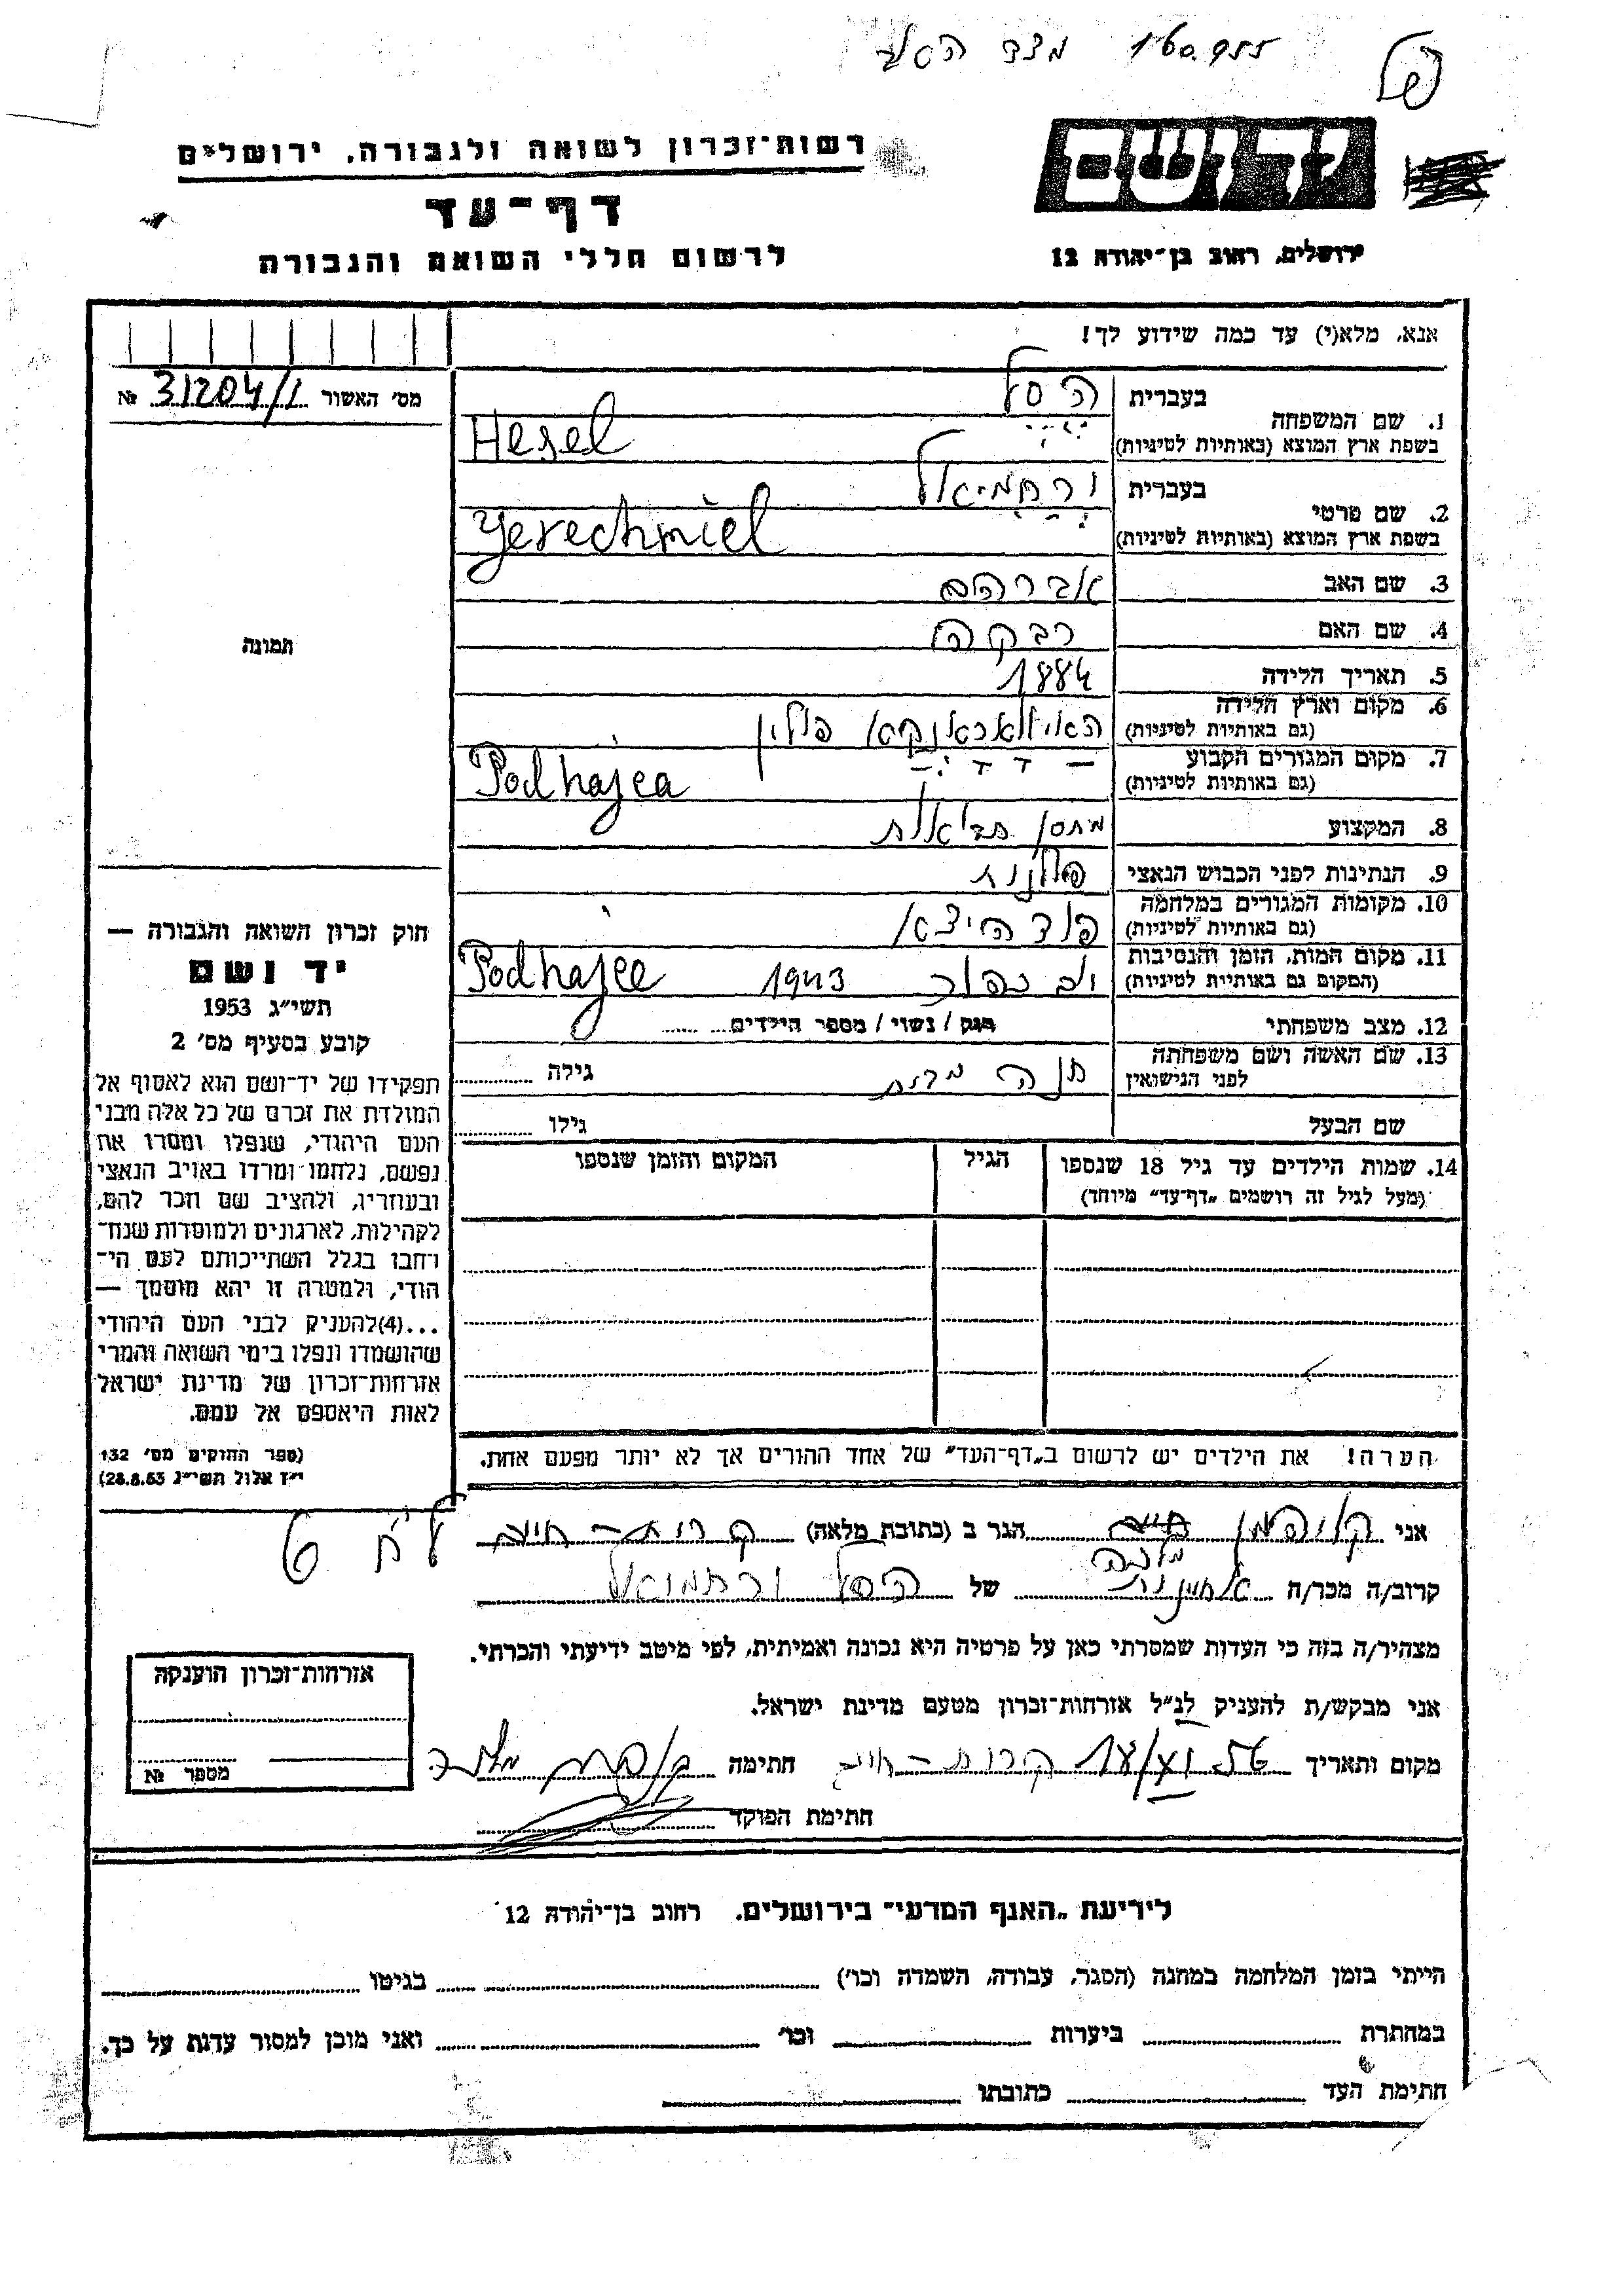 רשות-זכרון לשואה ולגבורה, ירושלים
יד ושם
דף-עד
לרשום חללי השואה והגבורה
ירושלים, רחוב בן-יהודה 12
אנא, מלא(י) עד כמה שידוע לך!
מס׳ האשור № 31204/I
1. שם המשפחה
בעברית הסל
בשפת ארץ המוצא (באותיות לטיניות) Hesel
2. שם פרטי
בעברית ירחמיאל
בשפת ארץ המוצא (באותיות לטיניות) Yerechmiel
3. שם האב אברהם
4. שם האם רבקה
5. תאריך הלידה 1884
6. מקום וארץ הלידה פולין
(גם באותיות לטיניות)
7. מקום המגורים הקבוע
(גם באותיות לטיניות) Podhajca
8. המקצוע מחסן תבואות
9. הנתינות לפני הכבוש הנאצי פולנית
10. מקומות המגורים במלחמה
(גם באותיות לטיניות) פודהיצא
11. מקום המות, הזמן והנסיבות 1943
(המקום גם באותיות לטיניות) Podhajce
12. מצב משפחתי רווק / נשוי / מספר הילדים
13. שם האשה ושם משפחתה
לפני הנישואין חנה גילה
שם הבעל גילו
14. שמות הילדים עד גיל 18 שנספו
(מעל לגיל זה רושמים „דף-עד״ מיוחד)
הגיל
המקום והזמן שנספו
תמונה
חוק זכרון השואה והגבורה —
יד ושם
תשי״ג 1953
קובע בסעיף מס׳ 2
תפקידו של יד-ושם הוא לאסוף אל
המולדת את זכרם של כל אלה מבני
העם היהודי, שנפלו ומסרו את
נפשם, נלחמו ומרדו באויב הנאצי
ובעוזריו, ולהציב שם וזכר להם,
לקהילות, לארגונים ולמוסדות שנח-
רבו בגלל השתייכותם לעם הי-
הודי, ולמטרה זו יהא מוסמך —
...(4)להעניק לבני העם היהודי
שהושמדו ונפלו בימי השואה והמרי
אזרחות-זכרון של מדינת ישראל
לאות היאספם אל עמם.
(ספר החוקים מס׳ 132
י״ז אלול תשי״ג 28.8.53)
הערה! את הילדים יש לרשום ב„דף-העד״ של אחד ההורים אך לא יותר מפעם אחת.
אני הגר ב (כתובת מלאה) קרית-חיים
מלכה
קרוב/ה מכר/ה של הסל ירחמיאל
מצהיר/ה בזה כי העדות שמסרתי כאן על פרטיה היא נכונה ואמיתית, לפי מיטב ידיעתי והכרתי.
אני מבקש/ת להעניק לנ״ל אזרחות-זכרון מטעם מדינת ישראל.
מקום ותאריך קרית-חיים חתימה
חתימת הפוקד
אזרחות-זכרון הוענקה
מספר №
לידיעת „האגף המדעי״ בירושלים. רחוב בן-יהודה 12
הייתי בזמן המלחמה במחנה (הסגר, עבודה, השמדה וכו׳) בגיטו
במחתרת ביערות וכו׳ ואני מוכן למסור עדות על כך.
חתימת העד כתובתו